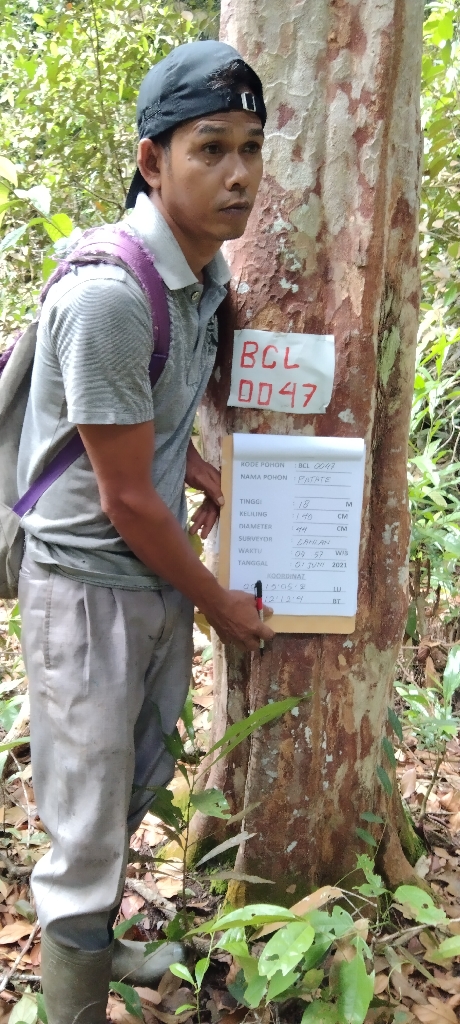 BCL
0047
KODE POHON : BCL 0047
NAMA POHON :
TINGGI : 18 M
KELILING : 140 CM
DIAMETER : 44 CM
SURVEYOR :
WAKTU : 09 37 WIB
TANGGAL : 01 JUNI 2021
KOORDINAT
LU
BT